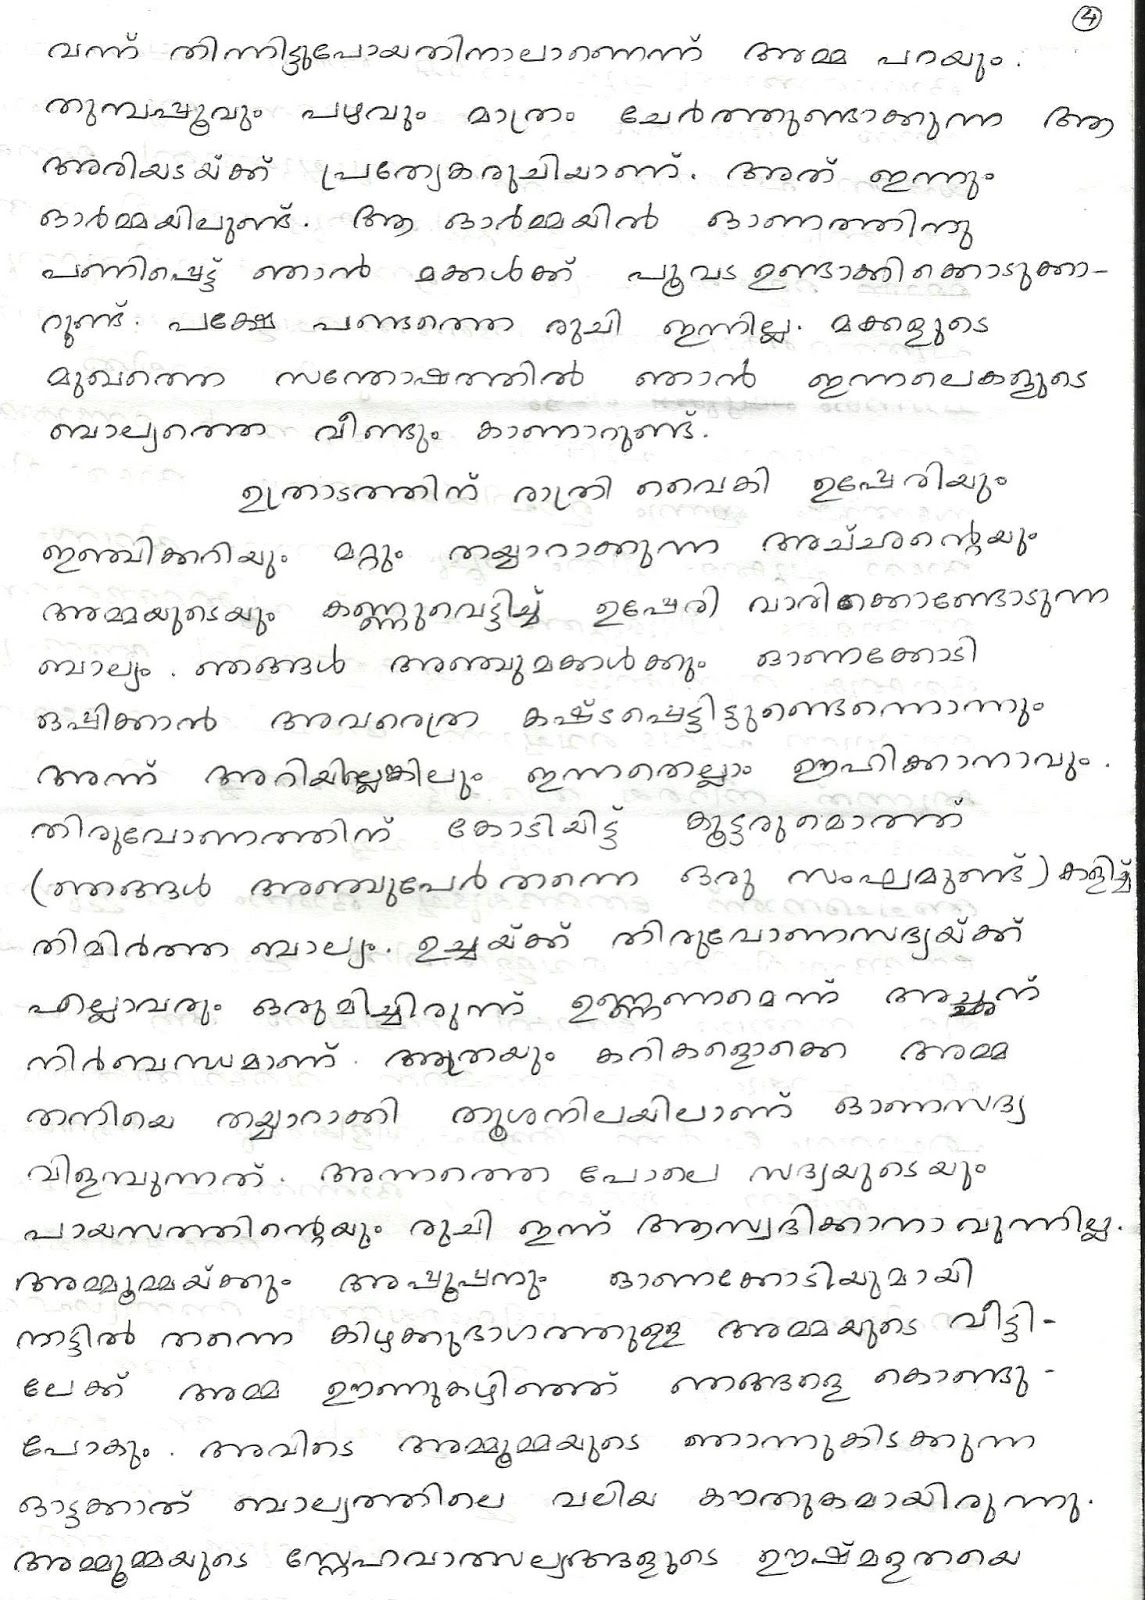 4
വന്ന് തിന്നിട്ടുപോയതിനാലാണെന്ന് അമ്മ പറയും.
തുമ്പപ്പൂവും പഴവും മാത്രം ചേർത്തുണ്ടാക്കുന്ന ആ
അരിയടയ്ക്ക് പ്രത്യേകരുചിയാണ്. അത് ഇന്നും
ഓർമ്മയിലുണ്ട്. ആ ഓർമ്മയിൽ ഓണത്തിനു
പണിപ്പെട്ട് ഞാൻ മക്കൾക്ക് പൂവട ഉണ്ടാക്കിക്കൊടുക്കാ-
റുണ്ട്. പക്ഷേ പണ്ടത്തെ രുചി ഇന്നില്ല. മക്കളുടെ
മുഖത്തെ സന്തോഷത്തിൽ ഞാൻ ഇന്നലെകളുടെ
ബാല്യത്തെ വീണ്ടും കാണാറുണ്ട്.
ഉത്രാടത്തിന് രാത്രി വൈകി ഉപ്പേരിയും
ഇഞ്ചിക്കറിയും മറ്റും തയ്യാറാക്കുന്ന അച്ഛന്റെയും
അമ്മയുടെയും കണ്ണുവെട്ടിച്ച് ഉപ്പേരി വാരിക്കൊണ്ടോടുന്ന
ബാല്യം. ഞങ്ങൾ അഞ്ചുമക്കൾക്കും ഓണക്കോടി
ഒപ്പിക്കാൻ അവരെത്ര കഷ്ടപ്പെട്ടിട്ടുണ്ടെന്നൊന്നും
അന്ന് അറിയില്ലെങ്കിലും ഇന്നതെല്ലാം ഊഹിക്കാനാവും.
തിരുവോണത്തിന് കോടിയിട്ട് കൂട്ടരുമൊത്ത്
(ഞങ്ങൾ അഞ്ചുപേർ തന്നെ ഒരു സംഘമുണ്ട്) കളിച്ച്
തിമിർത്ത ബാല്യം. ഉച്ചയ്ക്ക് തിരുവോണസദ്യയ്ക്ക്
എല്ലാവരും ഒരുമിച്ചിരുന്ന് ഉണ്ണണമെന്ന് അച്ഛന്
നിർബന്ധമാണ്. അത്രയും കറികളൊക്കെ അമ്മ
തനിയെ തയ്യാറാക്കി തൂശനിലയിലാണ് ഓണസദ്യ
വിളമ്പുന്നത്. അന്നത്തെ പോലെ സദ്യയുടെയും
പായസത്തിന്റെയും രുചി ഇന്ന് ആസ്വദിക്കാനാവുന്നില്ല.
അമ്മൂമ്മയ്ക്കും അപ്പൂപ്പനും ഓണക്കോടിയുമായി
നാട്ടിൽ തന്നെ കിഴക്കുഭാഗത്തുള്ള അമ്മയുടെ വീട്ടി-
ലേക്ക് അമ്മ ഊണുകഴിഞ്ഞ് ഞങ്ങളെ കൊണ്ടു-
പോകും. അവിടെ അമ്മൂമ്മയുടെ ഞാന്നുകിടക്കുന്ന
ഓട്ടക്കാത് ബാല്യത്തിലെ വലിയ കൗതുകമായിരുന്നു.
അമ്മൂമ്മയുടെ സ്നേഹവാത്സല്യങ്ങളുടെ ഊഷ്മളതയെ